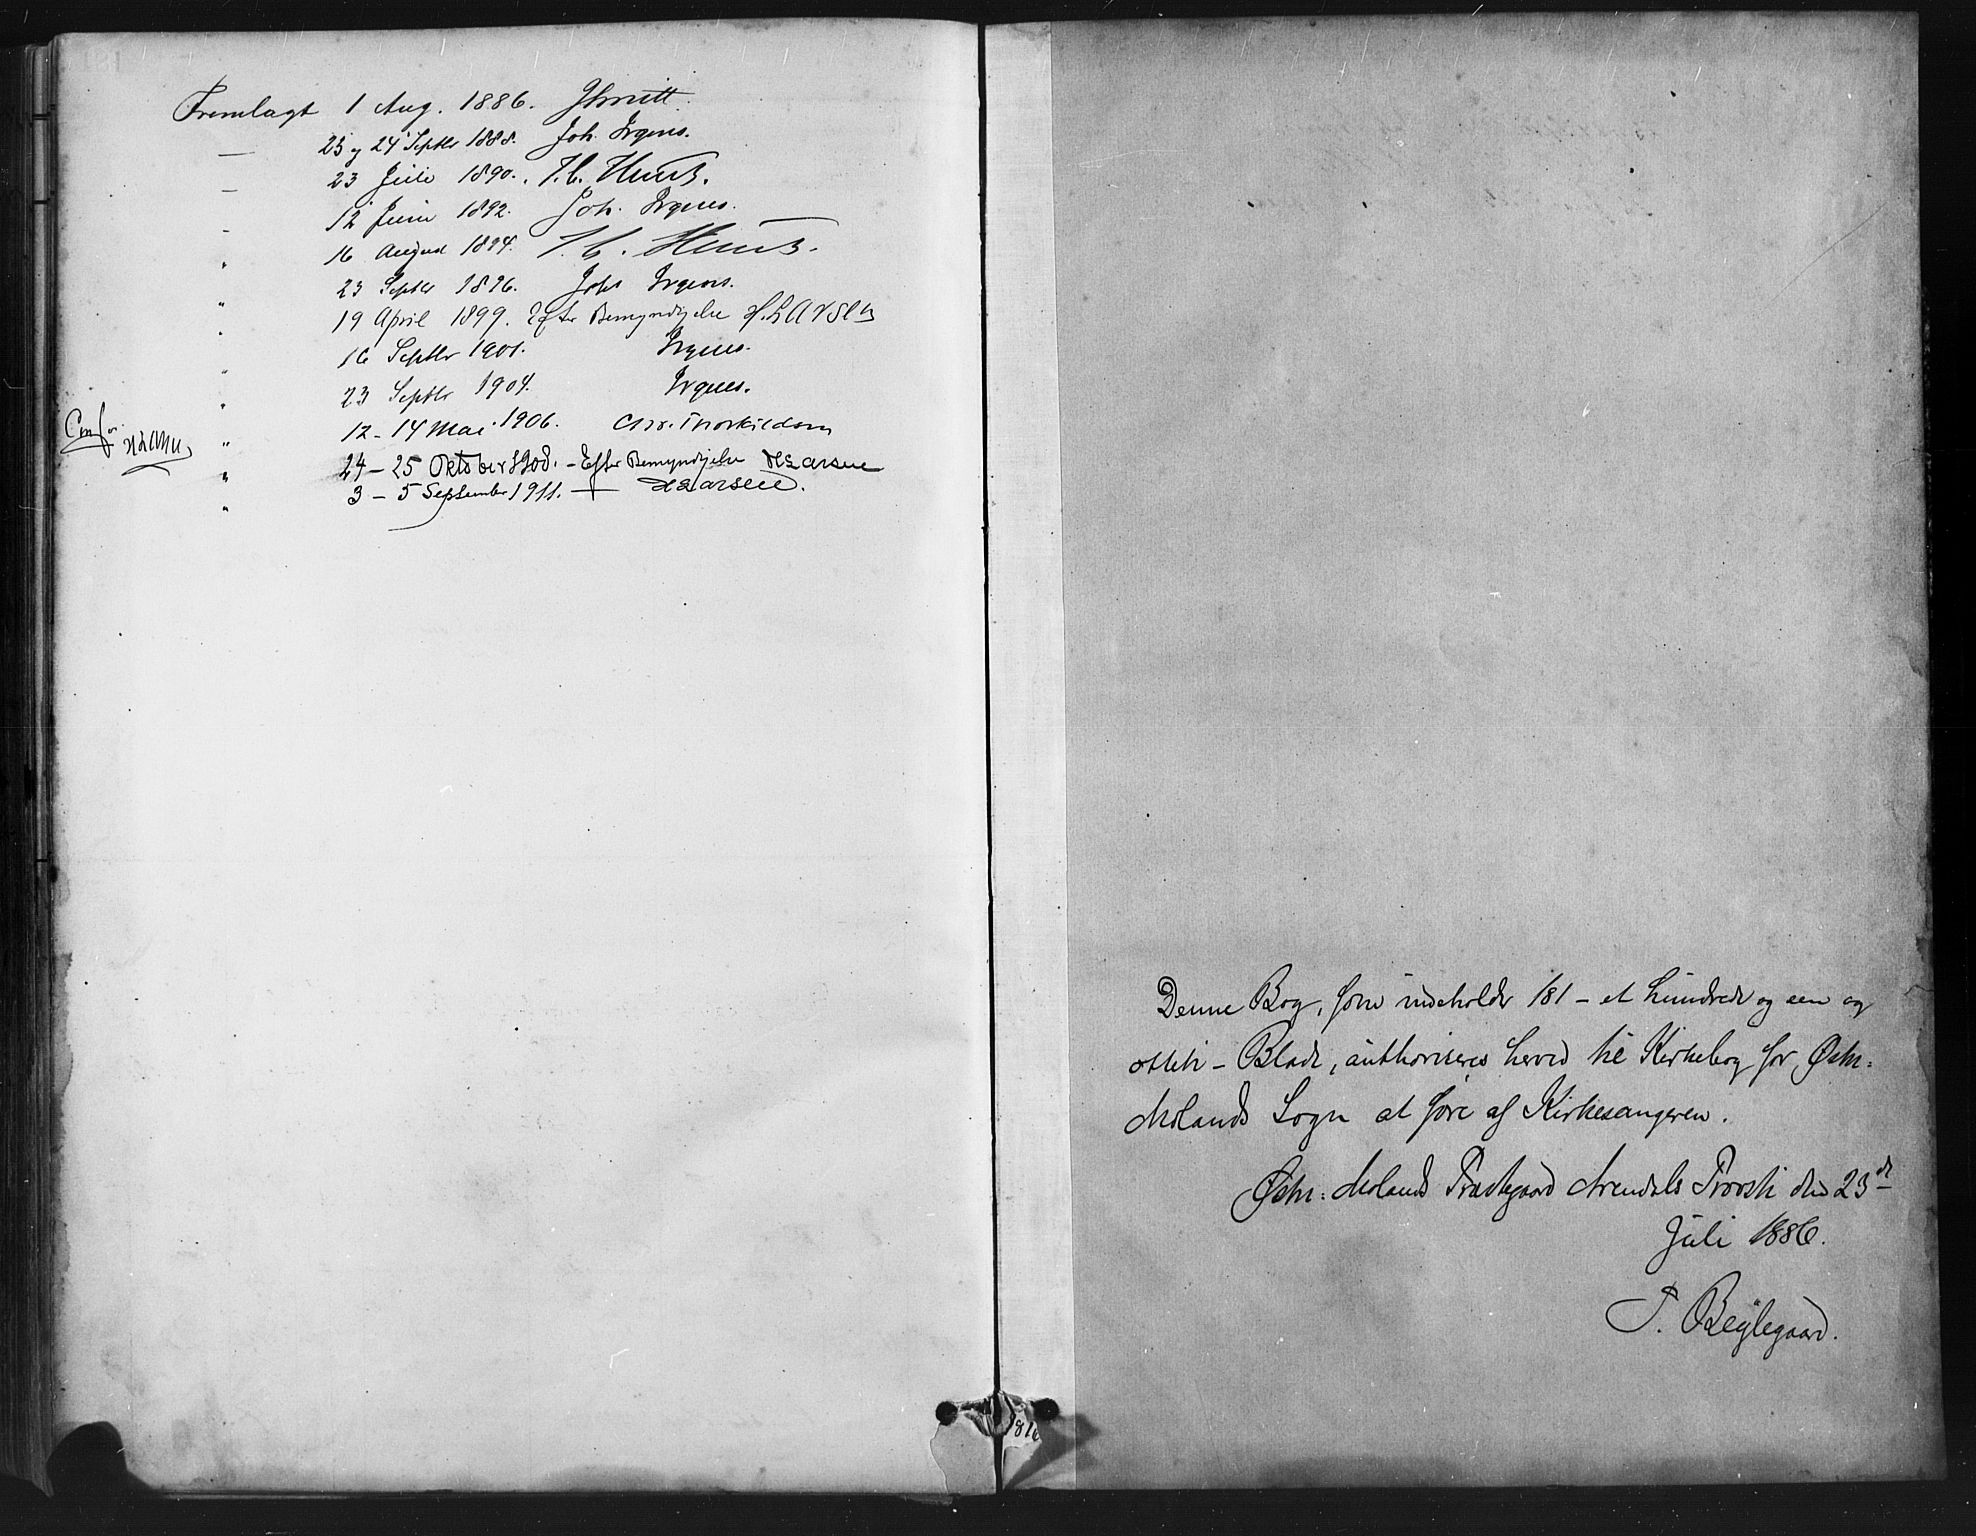 Fremlagt 1 Aug. 1886.
— 23 og 24 Septbr 1888. Joh. Irgens.
— 23 Juli 1890.
- 12 Juni 1892. Joh. Irgens.
" 16 August 1894.
" 23 Septbr 1896. Joh Irgens.
" 19 April 1899. Efter Bemyndigelse H. Larsen
" 16 Septbr 1901. Irgens.
" 23 Septbr 1904. Irgens.
" 12 - 14 Mai 1906. Chr. Thorkildsen
" 24 - 25 Oktober 1908. - Efter Bemyndigelse HLarsen
" 3 - 5 September 1911. — HLarsen.
Denne Bog, som indeholder 181 - et hundrede og een og
otteti - Blade, authoriseres herved til Kirkebog for Østr:
Molands Sogn at føre af Kirkesangeren.
Østr: Molands Præstegaard Arendals Provsti den 23de
Juli 1886.
J. Bejlegaard.